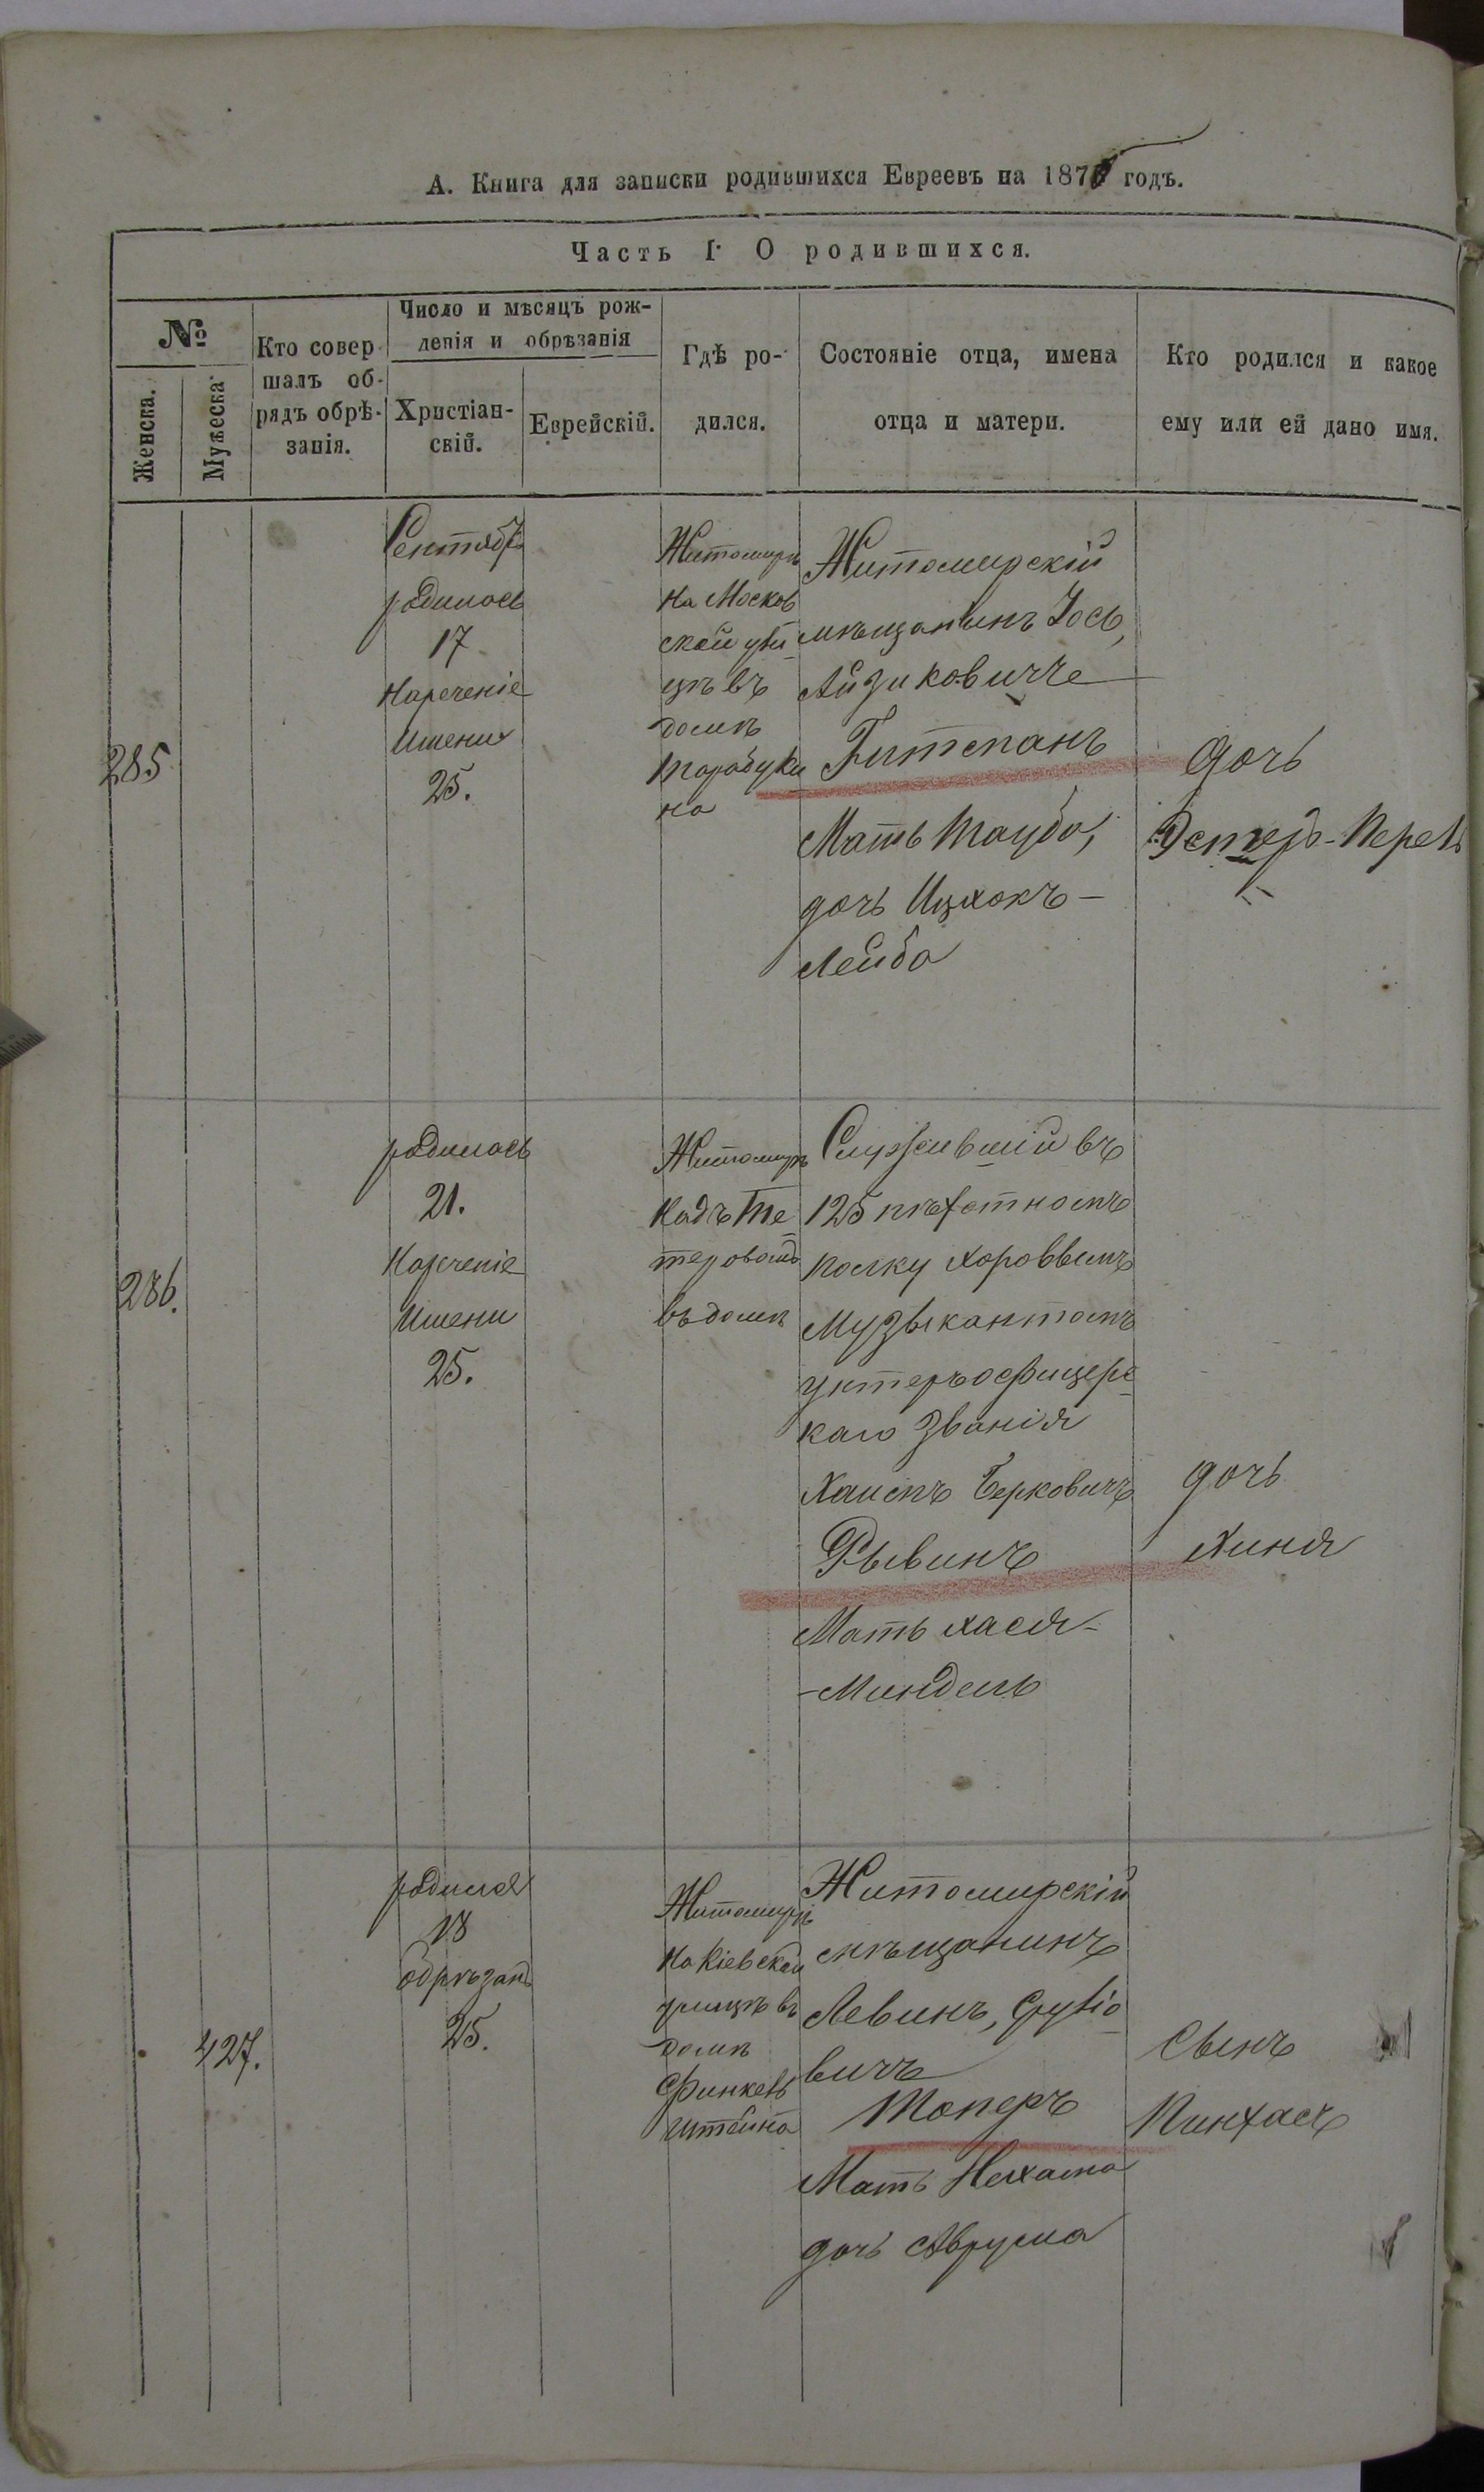 А. Книга для записки родившихся Евреевъ на 187 годъ.
Часть I· О родившихся.
№
Женска.
Мужеска
Кто совер-
шалъ об-
рядъ обрѣ-
занія.
Число и мѣсяцъ рож-
денія и обрѣзанія
Христіан-
скій.
Еврейскій.
Гдѣ ро-
дился.
Состояніе отца, имена
отца и матери.
Кто родился и какое
ему или ей дано имя.
285
Сентябр
родилась
17
Нареченіе
Имени
25.
Житомиръ
на Москов
ской ули
цѣ въ
домѣ
Тарабуки
на
Житомирскій
мѣщанинъ Іось,
Айзиковичъ
Гитманъ
Мать Тауба,
дочь Ицхокъ-
Лейба
Дочь
Эстеръ-Перель
286.
родилась
21.
Нареченіе
Имени
25.
Житомиръ
надъ Те
теровомъ
въ домѣ
Служившій въ
125 пѣхотномъ
полку хоровымъ
Музыкантомъ
унтеръ офицерс
каго Званія
Хаимъ Берковичъ
Рывинъ
Мать Хася-
-Миндель
дочь
Хиня
427.
родился
18
обрѣзанъ
25.
Житомиръ
на Кіевской
улицѣ въ
домѣ
Финкель
штейна
Житомирскій
мѣщанинъ
Левинъ, Сруліо
вичъ
Топеръ
Мать Нехама
дочь Аврума
Сынъ
Пинхасъ